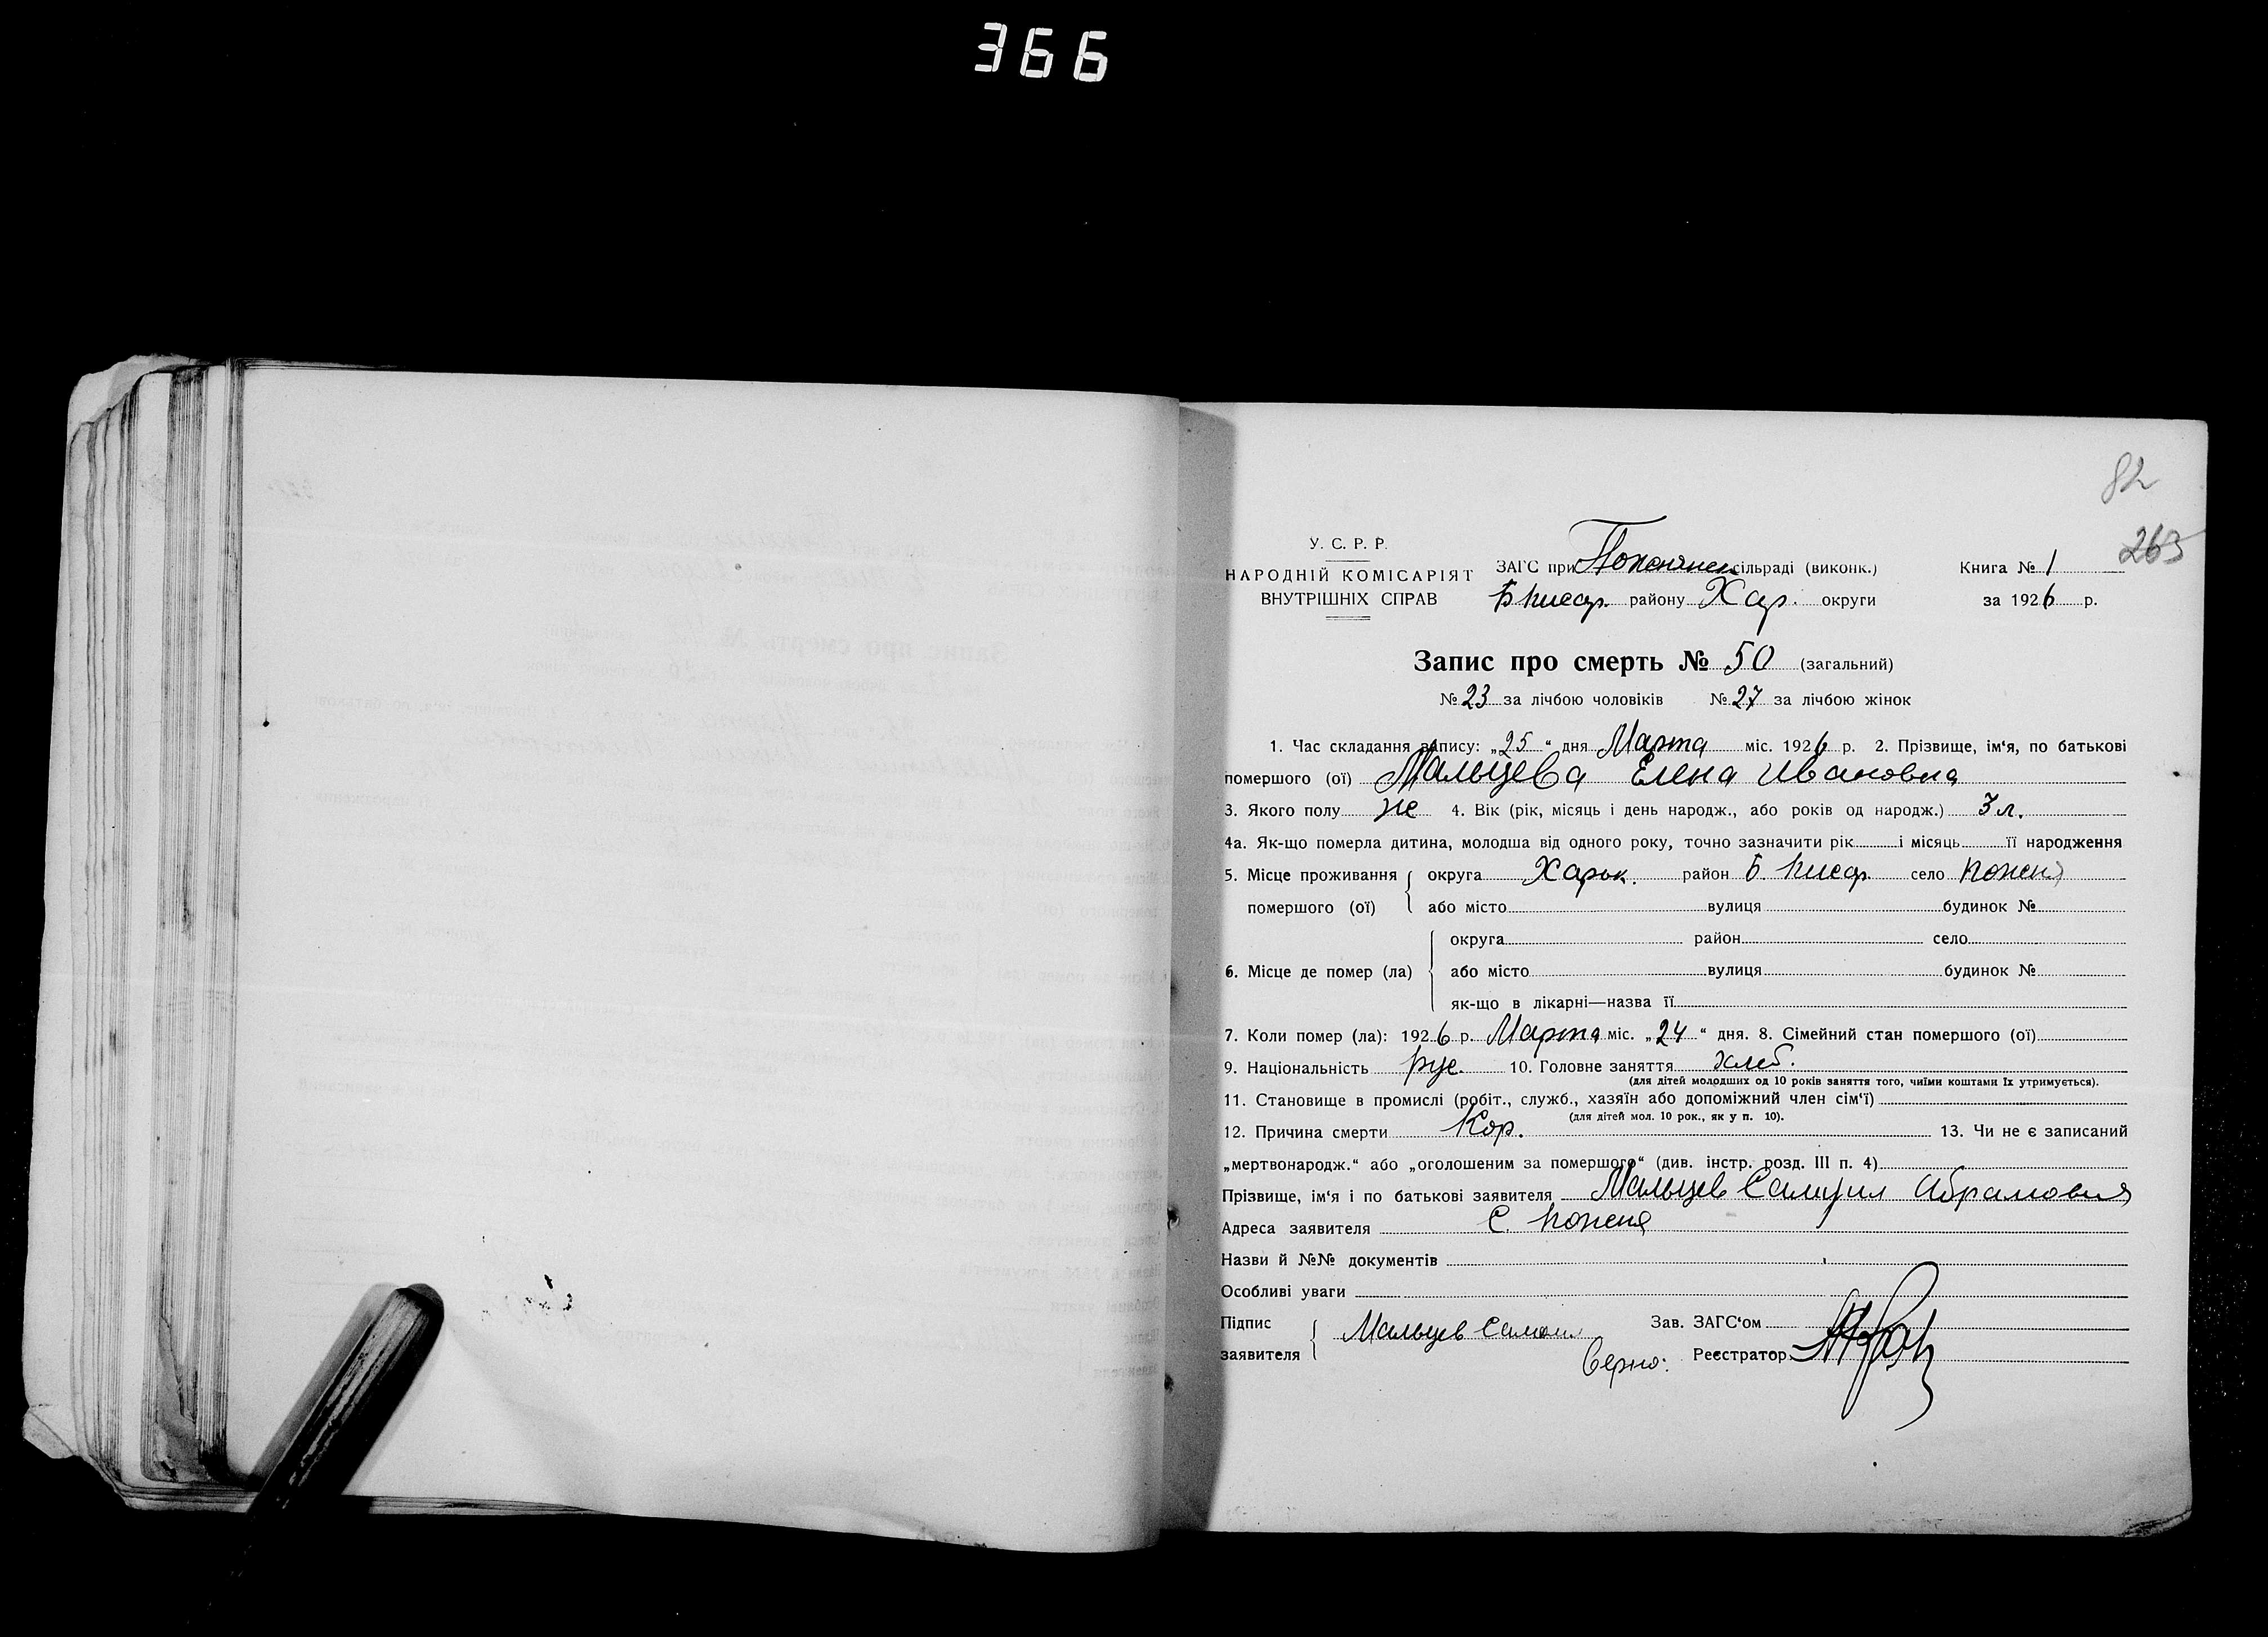 366
82
263
У. С. Р. Р.
НАРОДНІЙ КОМІСАРІЯТ
ВНУТРІШНІХ СПРАВ
ЗАГС при сільраді (виконк.)
Б Писар. району Хар. округи
Книга № 1
за 1926 р.
Запис про смерть № 50 (загальний)
№ 23 за лічбою чоловіків № 27 за лічбою жінок
1. Час складання запису: „25“ дня Марта міс. 1926 р. 2. Прізвище, ім'я, по батькові
помершого (ої) Мальцева Елена Ивановна
3. Якого полу же 4. Вік (рік, місяць і день народж., або років од народж.) 3 л.
4а. Як-що померла дитина, молодша від одного року, точно зазначити рік і місяць її народження
5. Місце проживання округа Харьк. район Б. Писар село Поженя
помершого (ої) або місто вулиця будинок №
округа район село
6. Місце де помер (ла) або місто вулиця будинок №
як-що в лікарні—назва її
7. Коли помер (ла): 1926 р. Марта міс. „24“ дня. 8. Сімейний стан помершого (ої)
9. Національність рус. 10. Головне заняття хлеб.
(для дітей молодших од 10 років заняття того, чиїми коштами їх утримується).
11. Становище в промислі (робіт., служб., хазяїн або допоміжний член сім'ї)
(для дітей мол. 10 рок., як у п. 10).
12. Причина смерти Кор. 13. Чи не є записаний
„мертвонародж.“ або „оголошеним за помершого“ (див. інстр. розд. III п. 4)
Прізвище, ім'я і по батькові заявителя Мальцев Самуил Абрамович
Адреса заявителя С. Поженя
Назви й №№ документів
Особливі уваги
Підпис
заявителя
Мальцев Самоил
Верно:
Зав. ЗАГС'ом
Реєстратор